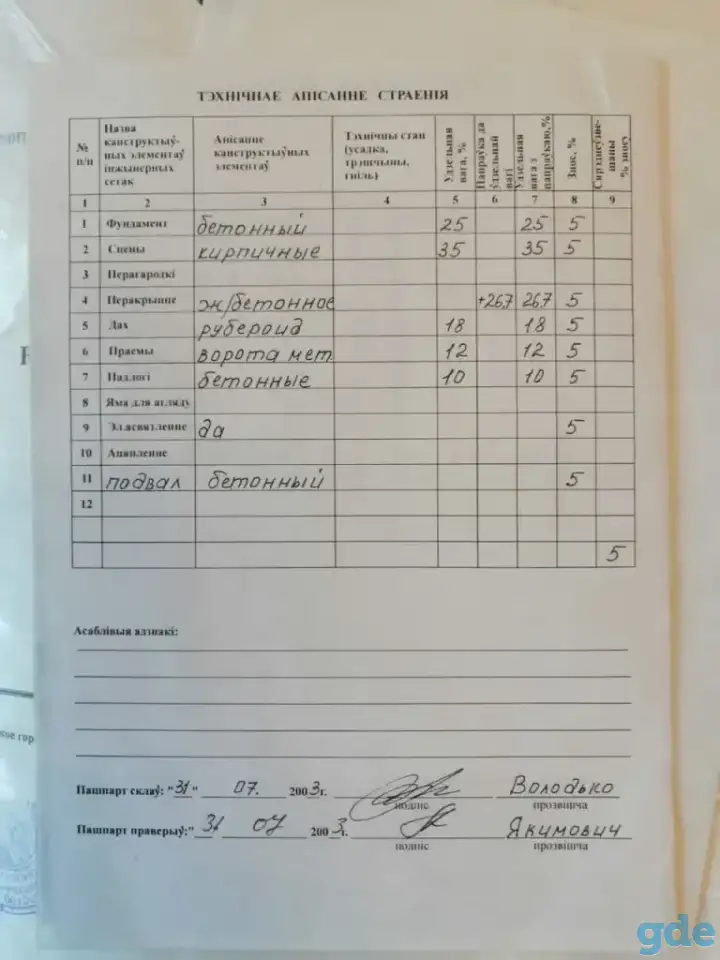 ТЭХНІЧНАЕ АПІСАННЕ СТРАЕНІЯ
№ п/п
Назва канструктыў-
ных элементаў
інжынерных
сетак
Апісанне
канструктыўных
элементаў
Тэхнічны стан
(усадка,
трэшчыны,
гніль)
Удзельная
вага, %
Папраўка да
ўдзельнай
вагі
Удзельная
вага з
папраўкаю, %
Знос, %
Сярэднеўзве-
шаны
% зносу
1 2 3 4 5 6 7 8 9
1 Фундамент бетонный 25 25 5
2 Сцены кирпичные 35 35 5
3 Перагародкі
4 Перакрыцце ж/бетонное +267 267 5
5 Дах рубероид 18 18 5
6 Праемы ворота мет 12 12 5
7 Падлогі бетонные 10 10 5
8 Яма для агляду
9 Эл.асвятленне да 5
10 Ацяпленне
11 подвал бетонный 5
12
5
Асаблівыя адзнакі:
Пашпарт склаў: "31" 07. 2003г. Володько
подпіс прозвішча
Пашпарт праверыў:" 31 07 2003г. Якимович
подпіс прозвішча
кое гор
gde